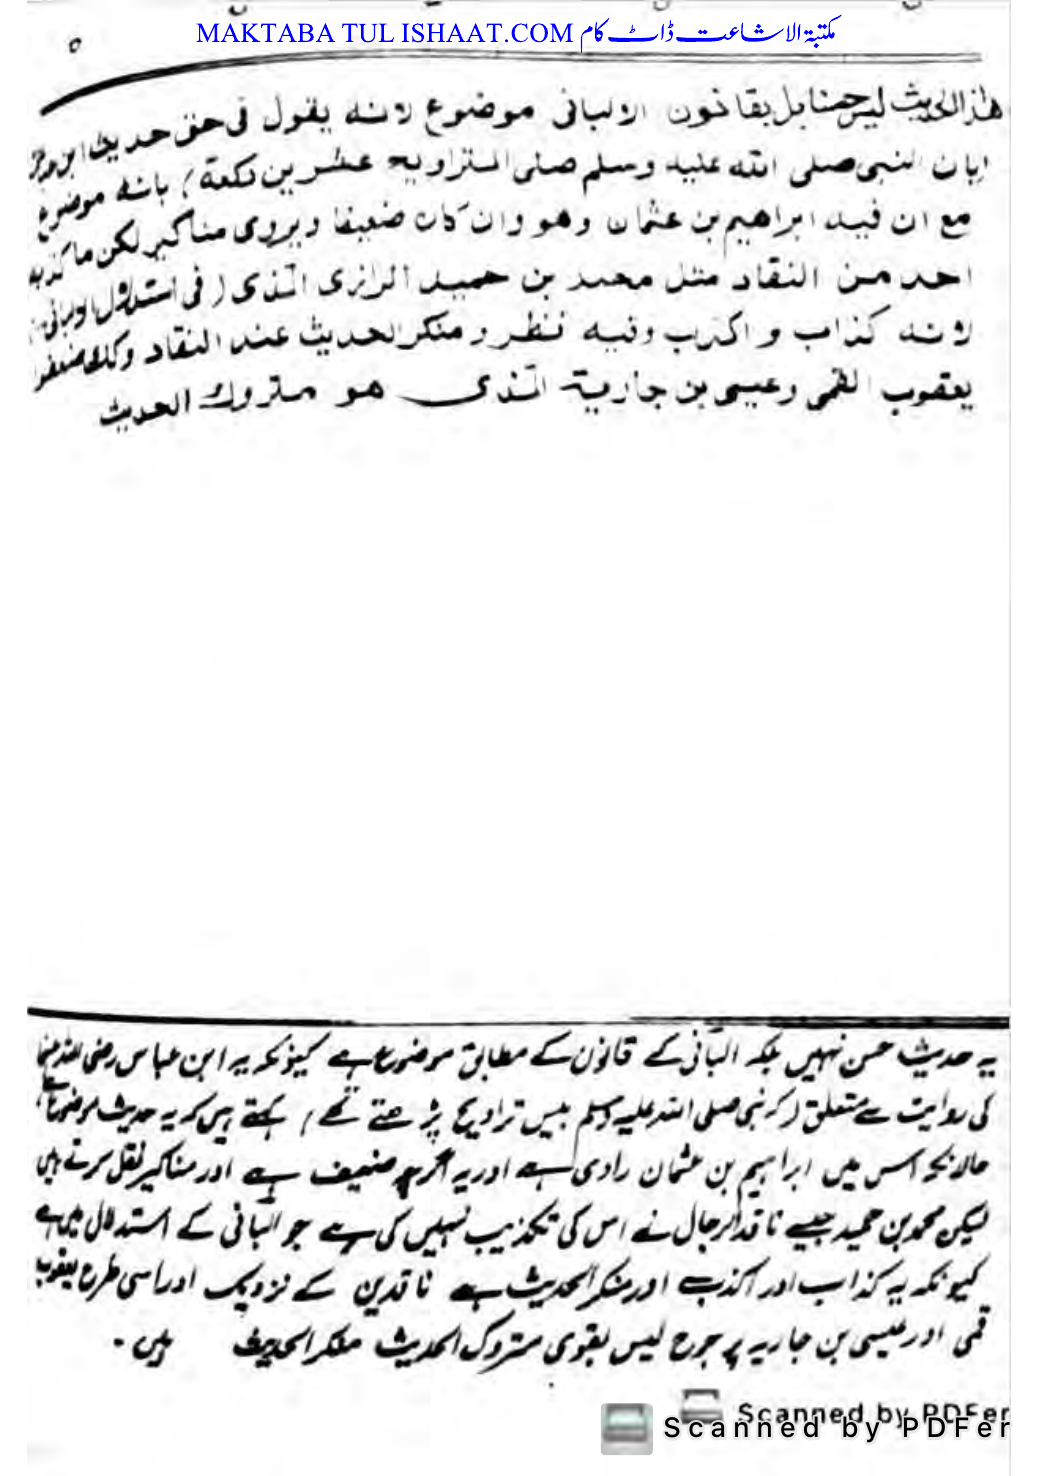 MAKTABA TUL ISHAAT.COM مکتبۃ الاشاعت ڈاٹ کام
٥
هذا الحديث ليس حسنا بل بقانون الالبانى موضوع لانه يقول فى حق حديث ابن
(بان النبى صلى الله عليه وسلم صلى التراويح عشرين ركعة) بانه موضوع
مع ان فيه ابراهيم بن عثمان وهو وان كان ضعيفا ويروى مناكير لكن ما كذبه
احد من النقاد مثل محمد بن حميد الرازى الذى (فى استدلال
لانه كذاب و اكذب وفيه نظر و منكر الحديث عند النقاد وكذا
يعقوب القمى وعيسى بن جارية الذى هو متروك الحديث
یہ حدیث حسن نہیں بلکہ البانی کے قانون کے مطابق موضوع ہے کیونکہ یہ ابن عباس رضی اللہ عنہا
کی روایت سے متعلق (کہ نبی صلی اللہ علیہ وسلم بیس تراویح پڑھتے تھے) کہتے ہیں کہ یہ حدیث موضوع ہے
حالانکہ اس میں ابراہیم بن عثمان راوی ہے اور یہ اگرچہ ضعیف ہے اور مناکیر نقل کرتے ہیں
لیکن محمد بن حمید جیسے ناقد الرجال نے اس کی تکذیب نہیں کی ہے جو البانی کے استدلال میں ہے
کیونکہ یہ کذاب اور اکذب اور منکر الحدیث ہے ناقدین کے نزدیک اور اسی طرح یعقوب
قمی اور عیسی بن جاریہ پر جرح لیس بقوی متروک الحدیث منکر الحدیث ہیں ۔
Scanned by PDFer
Scanned by PDFer